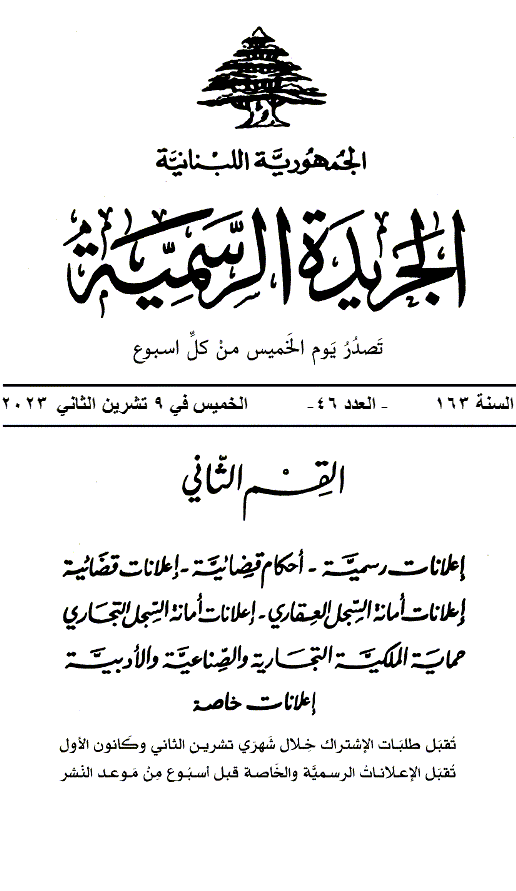 الجمهورية اللبنانية
الجريدة الرسمية
تَصدُرُ يَوم الخَميس منْ كلِّ اسبوع
السنة ١٦٣ - العدد ٤٦- الخميس في ٩ تشرين الثاني ٢٠٢٣
القِسْم الثّاني
إعلانات رسميَّة - أحكام قضائيَّة - إعلانات قضائية
إعلانات أمانة السِّجل العِقاري - إعلانات أمانة السِّجل التجاري
حماية الملكيَّة التجارية والصِّناعيَّة والأدبيَّة
إعلانات خاصة
تُقبَل طلبَات الإشتراك خِلال شَهرَي تشرين الثاني وكَانون الأول
تُقبَل الإعلاناتُ الرسميَّة والخَاصة قبل أسبُوع مِنْ مَوعد النَشر